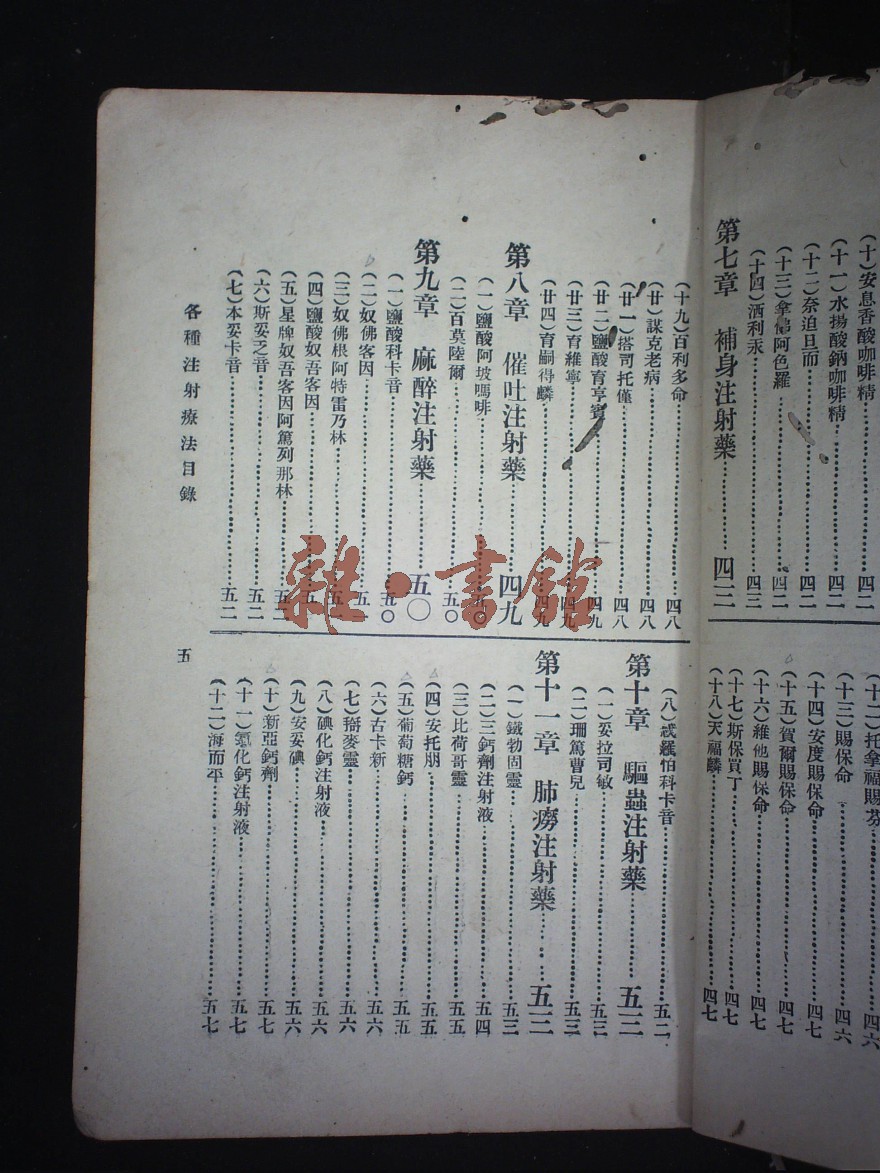 （十）安息香酸咖啡精 四二
（十一）水揚酸鈉咖啡精 四二
（十二）奈迫旦而 四二
（十三）拿佛阿色羅
（十四）洒利汞 四三
第七章 補身注射藥 四三
（十二）托拿福賜芬 四六
（十三）賜保命 四六
（十四）安度賜保命 四七
（十五）賀爾賜保命 四七
（十六）維他賜保命 四七
（十七）斯保買丁 四七
（十八）天福麟 四七
（十九）百利多命 四八
（廿）謀克老病 四八
（廿一）搭司托僅 四八
（廿二）鹽酸育亨賓 四九
（廿三）育維寧 四九
（廿四）育嗣得麟 四九
第八章 催吐注射藥 四九
（一）鹽酸阿坡嗎啡 五〇
（二）百莫陸爾 五〇
第九章 麻醉注射藥 五〇
（一）鹽酸科卡音 五〇
（二）奴佛客因 五一
（三）奴佛根阿特雷乃林 五一
（四）鹽酸奴吾客因 五
（五）星牌奴吾客因阿篤列那林 五二
（六）斯妥乏音 五二
（七）本妥卡音 五二
（八）忒羅怕科卡音 五二
第十章 驅蟲注射藥 五三
（一）妥拉司敏 五三
（二）珊篤曹兒 五三
第十一章 肺癆注射藥 五三
（一）鐵勃固靈 五三
（二）三鈣劑注射液 五四
（三）比荷哥靈 五五
（四）安托朋 五五
（五）葡萄糖鈣 五五
（六）古卡新 五六
（七）掰麥靈 五六
（八）碘化鈣注射液 五六
（九）安妥碘 五六
（十）新亞鈣劑 五七
（十一）氯化鈣注射液 五七
（十二）海而平 五七
各種注射療法目錄
五
雜·書館